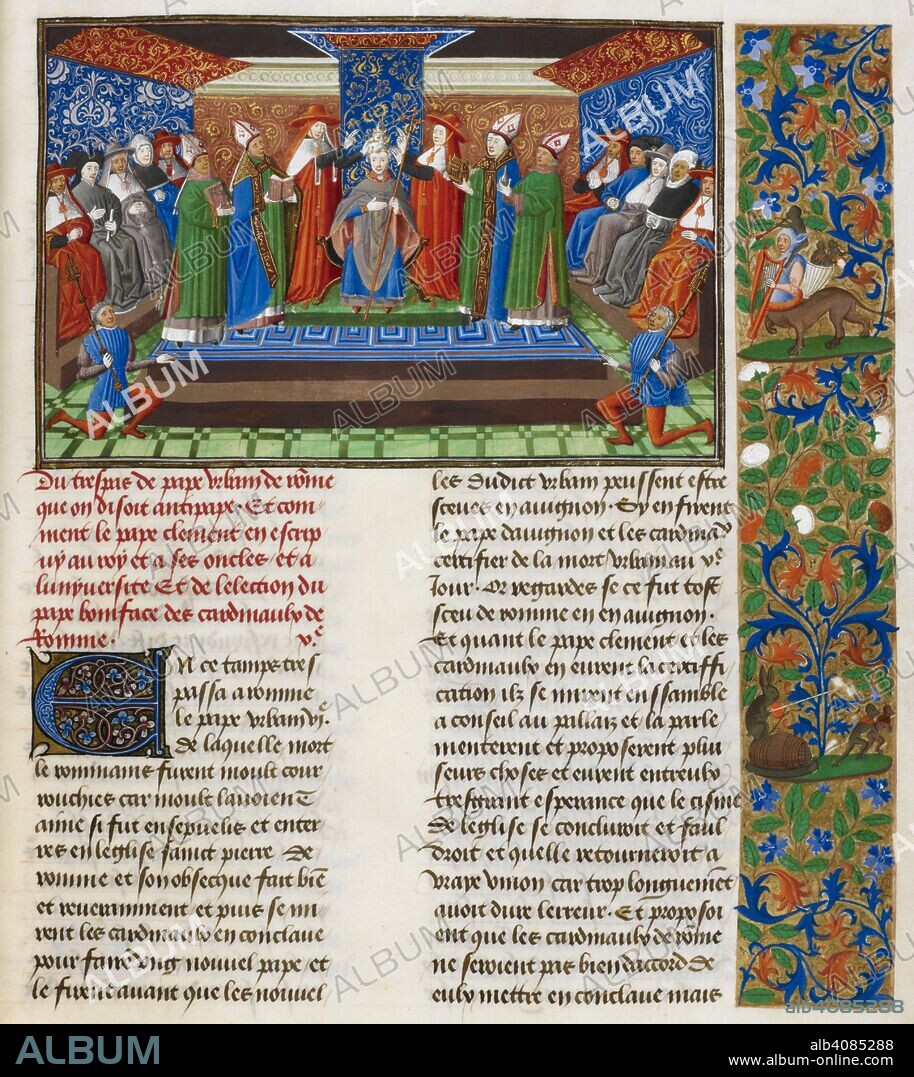 Du trespas de pape vrbain de rõme
que on disoit antipape. Et com-
ment le pape clement en escrip
uy au roy et a ses oncles. et a
luniuersite Et de lelection du
pape boniface des cardinaulx de
Romme. v.e
En ce tamps tres
passa a romme
le pape vrbain vj.e
de laquelle mort
le rommains furent moult cour
rouchies car moult lauoient
aime si fut enseuelis et enter
res en leglise sainct pierre de
romme et son obseque fait biẽ
et reueramment et puis se mi
rent les cardinaulx en conclaue
pour faire vng nouuel pape et
le firent auant que les nouuel
les dudict vrbain peussent estre
sceues en auignon. Sy en furent
le pape dauignon et les cardinaux
certifier de la mort vrbain au v.e
Jour. Or regardes se ce fut tost
sceu de romme en en auignon.
Et quant le pape clement et les
cardinaulx en eurent la certiffi
cation ilz se mirent enssamble
a conseil au pallaix et la parle
menterent et proposerent plui
seurs choses et eurent entreulx
tresgrant esperance que le cisme
de leglise se concluroit et faul
droit et quelle retourneroit a
vraye vnion car trop longuemẽt
auoit dure lerreur. Et proposoi
ent que les cardinaulx de rõme
ne seroient pas bien daccord de
eulx mettre en conclaue mais
ALBUM
alb4085288
ALBUM
alb4085288
www.album-online.com